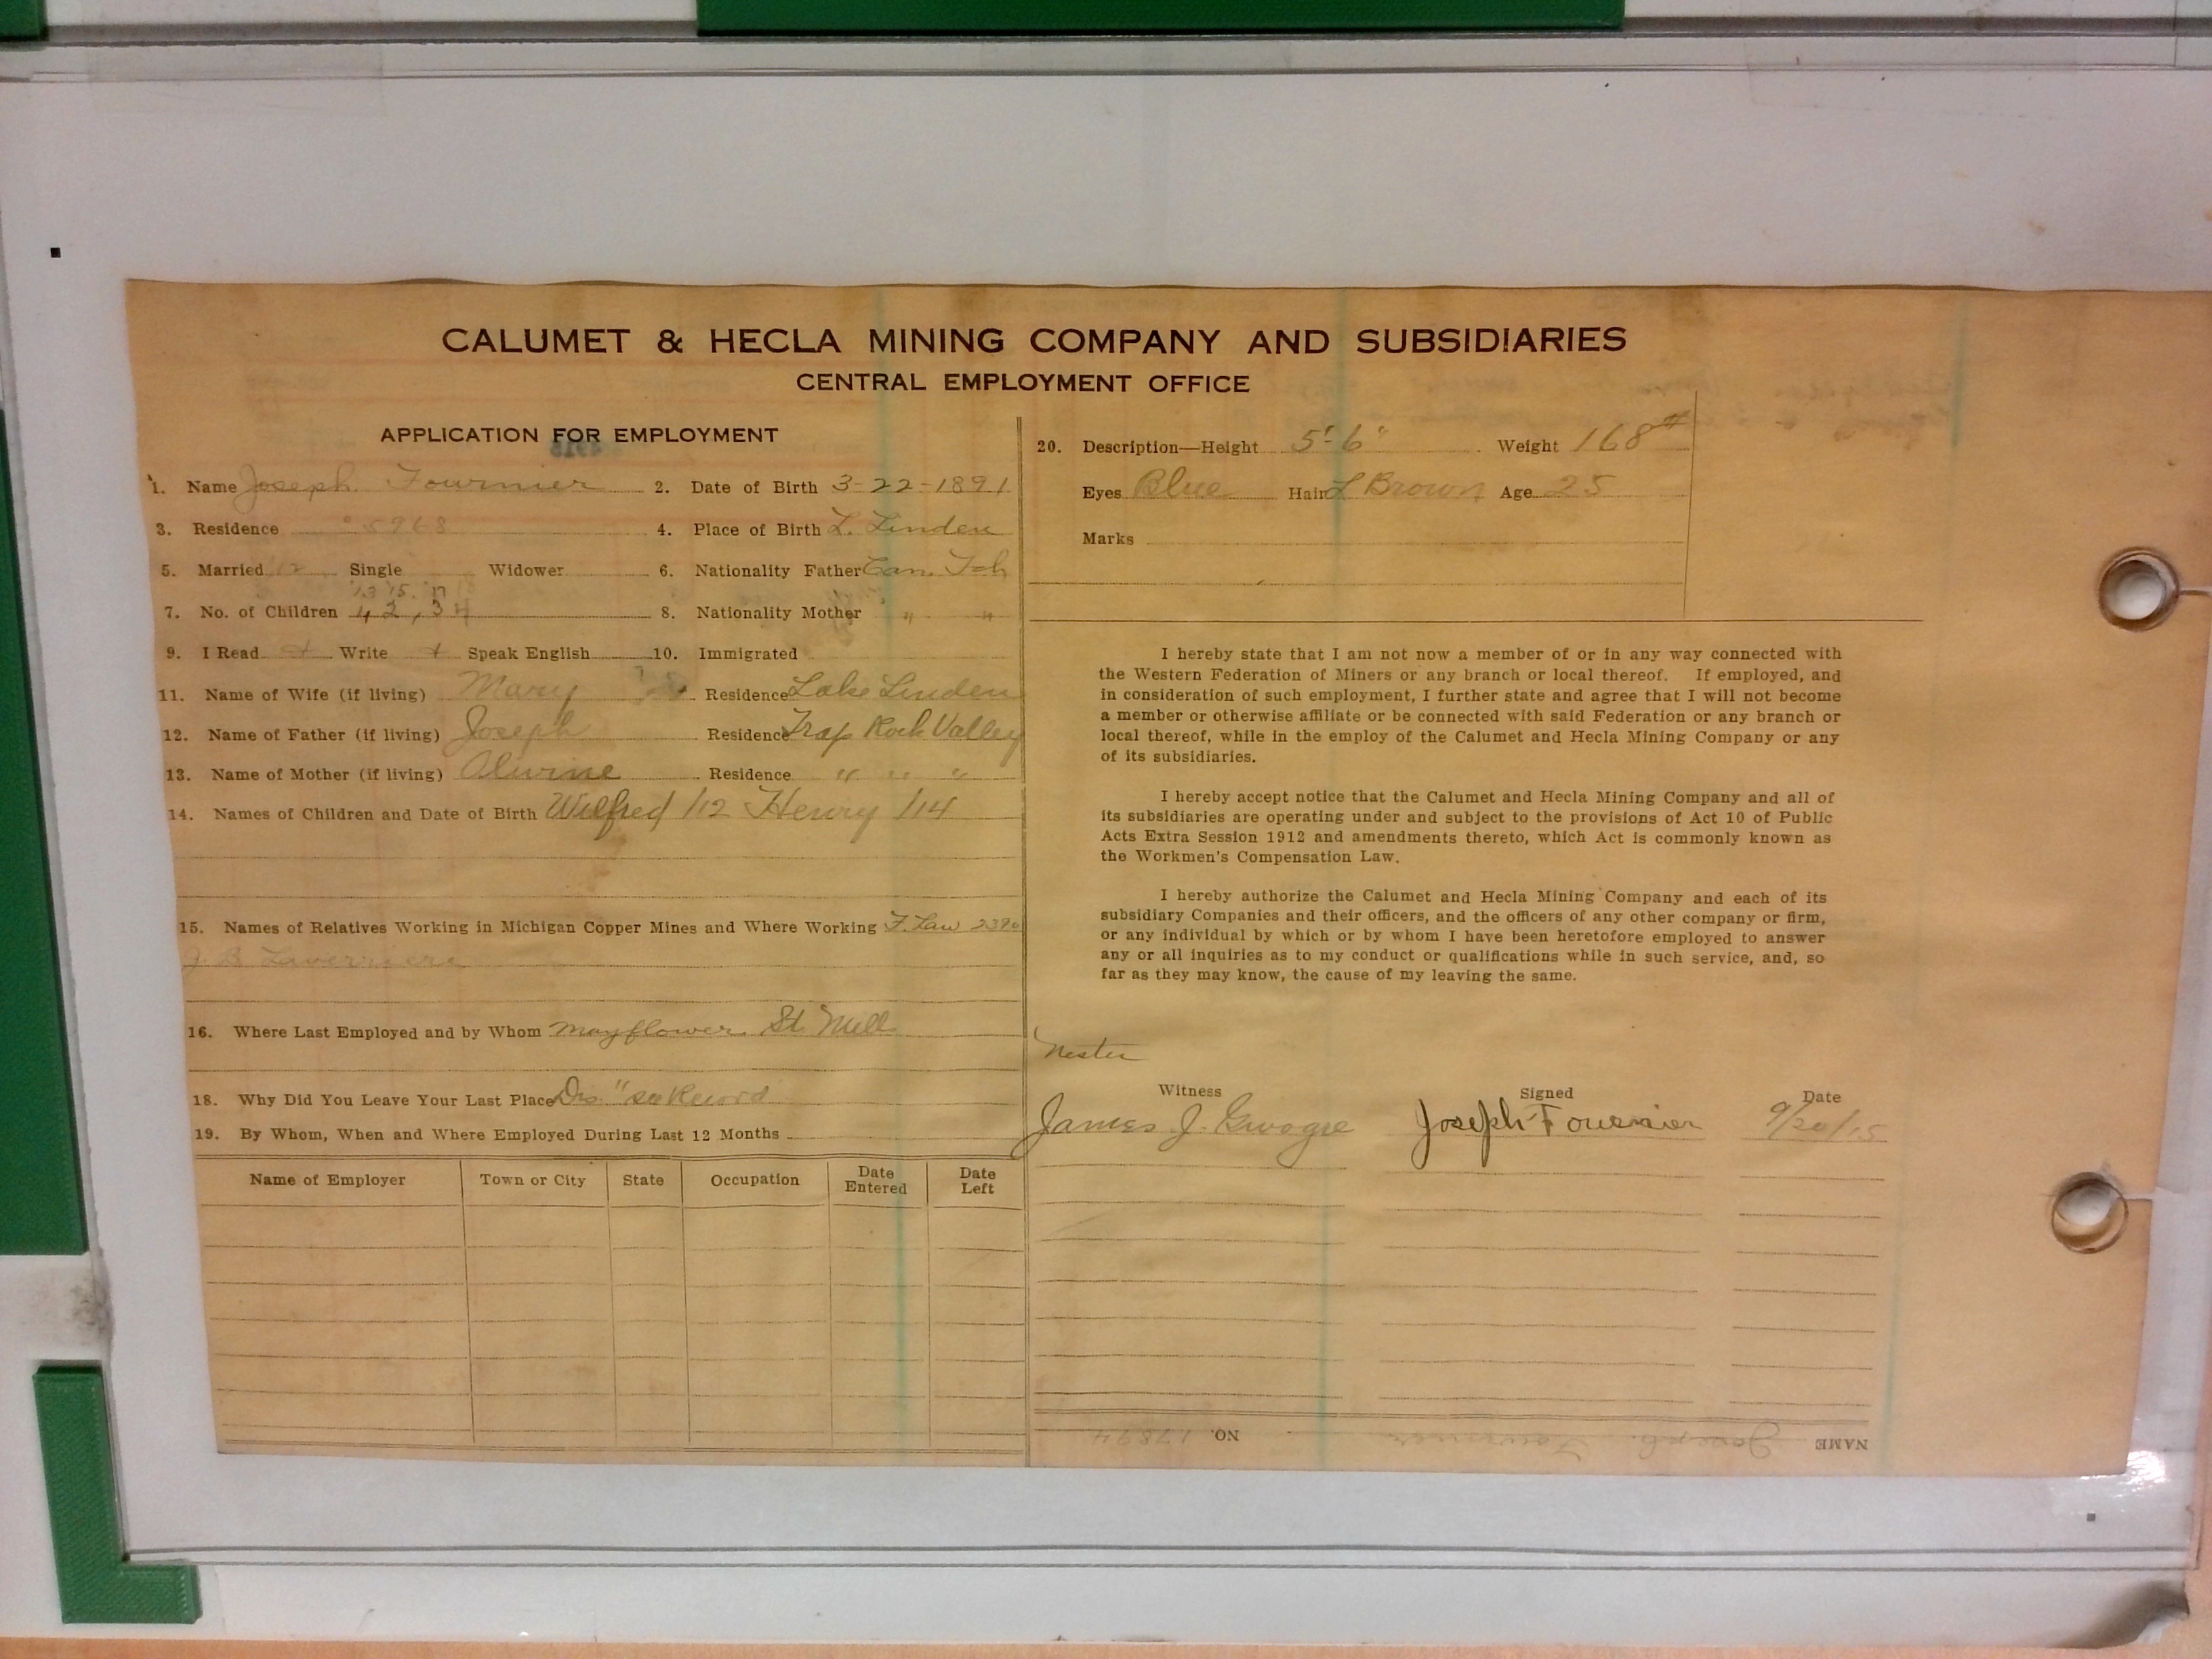 CALUMET & HECLA MINING COMPANY AND SUBSIDIARIES
CENTRAL EMPLOYMENT OFFICE
APPLICATION FOR EMPLOYMENT
1. Name Joseph Fournier 2. Date of Birth 3-22-1891
3. Residence 5968 4. Place of Birth L. Linden
5. Married 12 Single Widower 6. Nationality Father Can. Fch
'13 '15 '17
7. No. of Children 4, 2, 3 8. Nationality Mother " "
9. I Read + Write + Speak English 10. Immigrated
11. Name of Wife (if living) Mary Residence Lake Linden
12. Name of Father (if living) Joseph Residence Trap Rock Valley
13. Name of Mother (if living) Olivine Residence " " "
14. Names of Children and Date of Birth Wilfred /12 Henry /14
15. Names of Relatives Working in Michigan Copper Mines and Where Working F. Law 2390
J B Laverriere
16. Where Last Employed and by Whom Mayflower St Mill
18. Why Did You Leave Your Last Place Dis. "see Record
19. By Whom, When and Where Employed During Last 12 Months
Name of Employer Town or City State Occupation Date Entered Date Left
20. Description—Height 5'-6" Weight 168#
Eyes Blue Hair L Brown Age 25
Marks
I hereby state that I am not now a member of or in any way connected with
the Western Federation of Miners or any branch or local thereof. If employed, and
in consideration of such employment, I further state and agree that I will not become
a member or otherwise affiliate or be connected with said Federation or any branch or
local thereof, while in the employ of the Calumet and Hecla Mining Company or any
of its subsidiaries.
I hereby accept notice that the Calumet and Hecla Mining Company and all of
its subsidiaries are operating under and subject to the provisions of Act 10 of Public
Acts Extra Session 1912 and amendments thereto, which Act is commonly known as
the Workmen's Compensation Law.
I hereby authorize the Calumet and Hecla Mining Company and each of its
subsidiary Companies and their officers, and the officers of any other company or firm,
or any individual by which or by whom I have been heretofore employed to answer
any or all inquiries as to my conduct or qualifications while in such service, and, so
far as they may know, the cause of my leaving the same.
Nester
Witness Signed Date
James J. Joseph Fournier 9/20/15
NAME Joseph Fournier NO. 17894